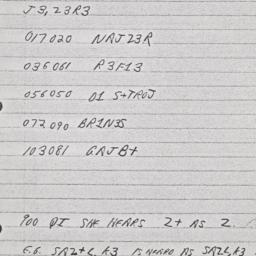 J3,23R3
017.020 NAJ23R
036061 R3F13
056050 01 S+TROJ
072.090 BR1N3S
103081 GAJB+
900 DI SHE HEARS 2+ AS 2.
E.G. SA2+L, K3 IS HEARD AS SA2L, K3